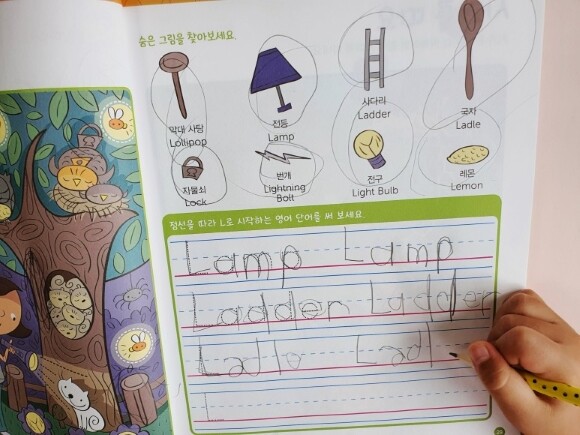 숨은 그림을 찾아보세요.
막대 사탕 전등 사다리 국자
Lollipop Lamp Ladder Ladle
자물쇠 번개 전구 레몬
Lock Lightning Bolt Light Bulb Lemon
점선을 따라 L로 시작하는 영어 단어를 써 보세요.
Lamp Lamp
Ladder Ladder
Ladle Ladl
L